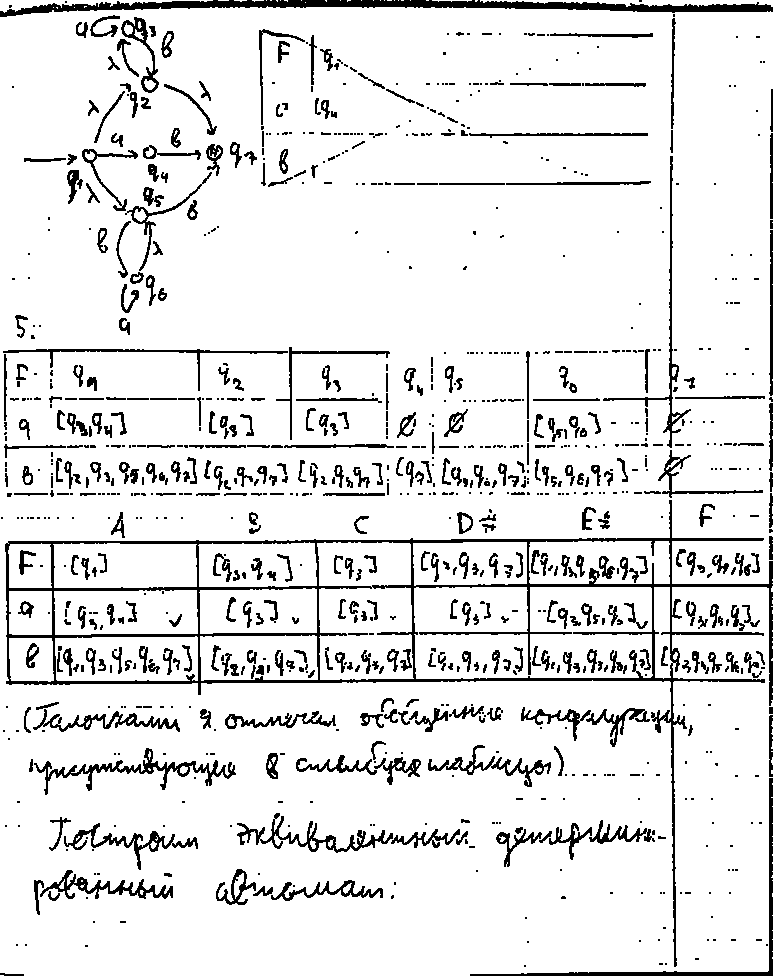 a q3
λ в
q2 λ
λ
a в
q1 q4 q7
λ q5 в
в λ
q6
a
F q1
a
в
5.
F q1 q2 q3 q4 q5 q6 q7
a [q3,q4] [q3] [q3] ∅ ∅ [q5,q6] ∅
в [q2,q3,q5,q6,q7] [q2,q3,q7] [q2,q3,q7] [q7] [q5,q6,q7] [q5,q6,q7] ∅
A B C D E F
F [q1] [q3,q4] [q3] [q2,q3,q7] [q2,q3,q5,q6,q7] [q3,q5,q6]
a [q3,q4] ✓ [q3] ✓ [q3] [q3] [q3,q5,q6] ✓ [q3,q5,q6] ✓
в [q2,q3,q5,q6,q7] ✓ [q2,q3,q7] ✓ [q2,q3,q7] [q2,q3,q7] ✓ [q2,q3,q5,q6,q7] ✓ [q2,q3,q5,q6,q7] ✓
(Галочками я отмечал обобщённые конфигурации,
присутствующие в столбцах таблицы)
Построим эквивалентный детермини-
рованный автомат: